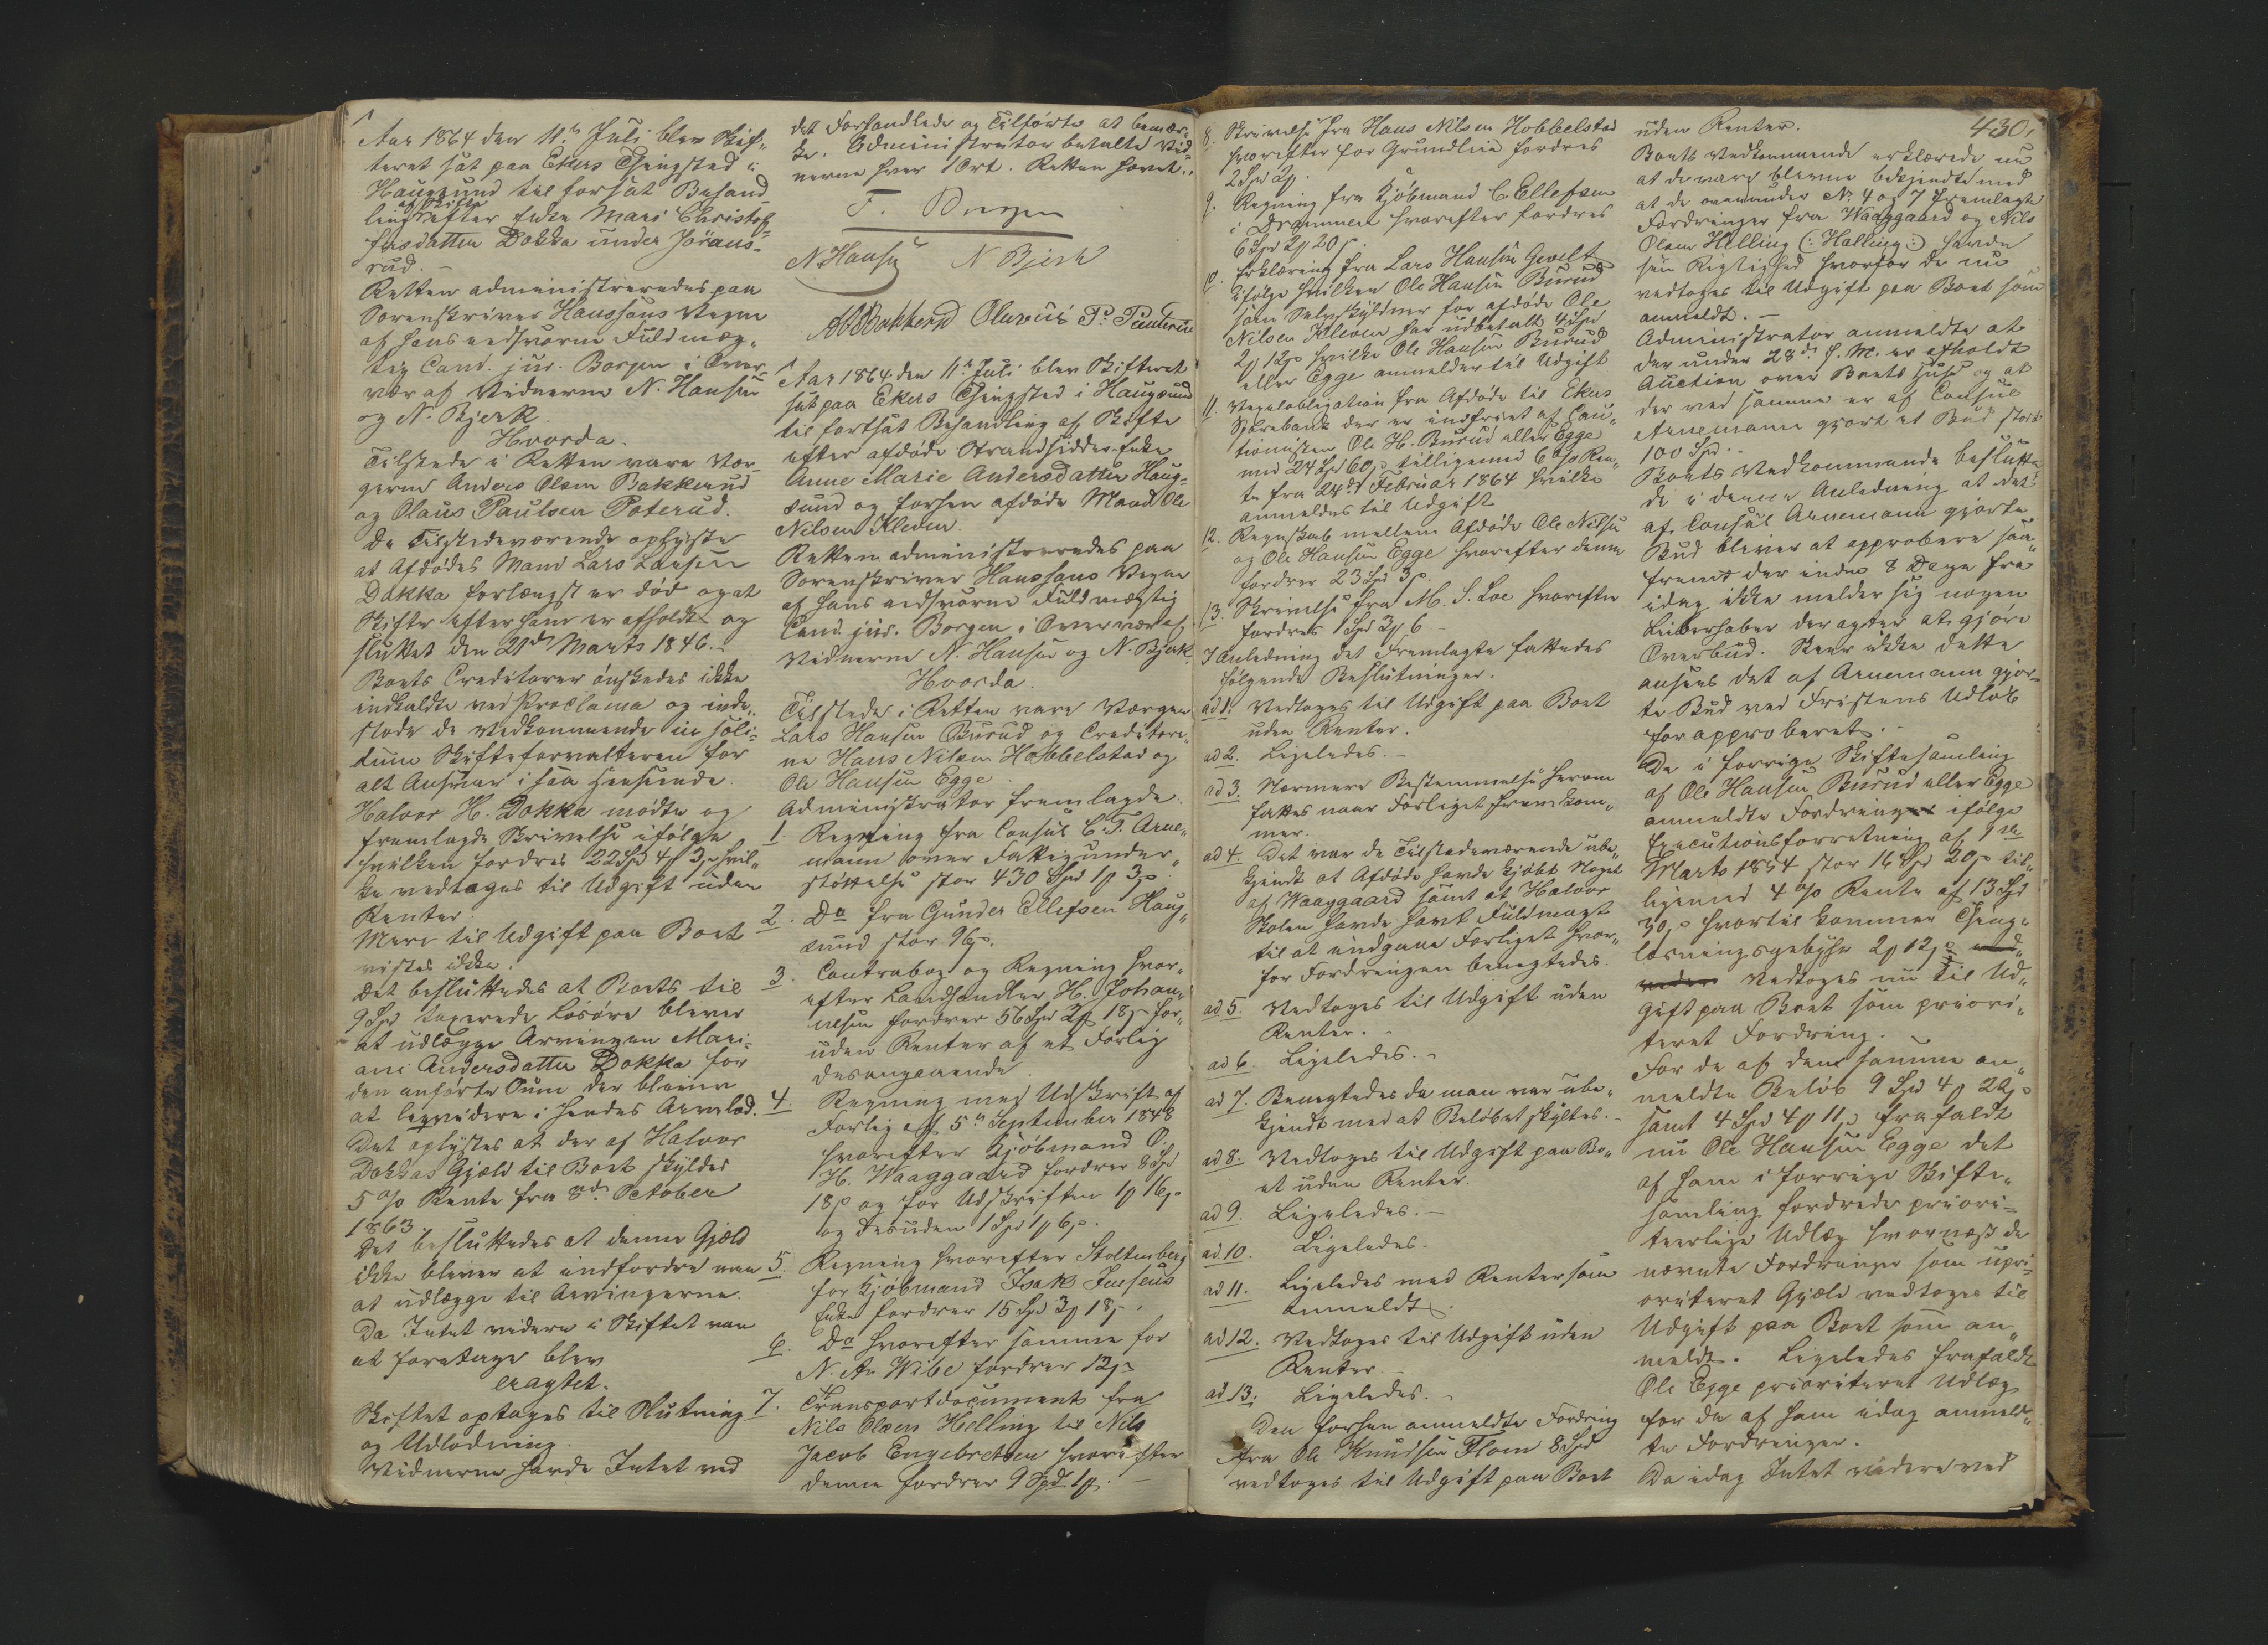 Aar 1864 den 11te Juli blev Skif-
teret sat paa Ekers Thingsted i
Haugsund til fortsat Behand-
ling af Skifte efter Enke Mari Christof-
fersdatter Dokka under Jöraas-
rud. -
Retten administreredes paa
Sorenskriver Hanssons Vegne
af hans edsvorne Fuldmæg-
tig Cand. jur. Borgen i Over-
vær af Vidnerne N. Hansen
og N. Bjerk.
Hvorda.
Tilstede i Retten vare Vær-
gerne Anders Olsen Bakkerud
og Olaus Paulsen Poterud.
De Tilstedeværende oplyste
at Afdödes Mand Lars Larsen
Dokka forlængst er död og at
Skifte efter ham er afholdt og
sluttet den 21de Marts 1846. -
Boets Creditorer önskedes ikke
indkaldte ved Proclama og inde-
stode de Vedkommende in soli-
dum Skifteforvalteren for
alt Ansvar i saa Henseende.
Halvor H. Dokka mödte og
fremlagde Skrivelse ifölge
hvilken fordres 22 Spd 4 ß 3 s hvil-
ke vedtages til Udgift uden
Renter.
Mere til Udgift paa Boet
vistes ikke.
Det besluttedes at Boets til
9 Spd taxerede Lösöre bliver
at udlægge Arvingen Mari-
ani Andersdatter Dokka for
den anförte Sum der bliver
at liqvidere i hendes Arvelod.
Det oplystes at der af Halvor
Dokkas Gjæld til Boet skyldes
5 % Rente fra 8de October
1863.
Det besluttedes at denne Gjæld
ikke bliver at indfordre men
at udlægge til Arvingerne.
Da Intet videre i Skiftet var
at foretage blev
eragtet.
Skiftet optages til Slutning
og Udlodning.
Vidnerne havde Intet ved
det Forhandlede og Tilförte at bemær-
ke. Administrator betalte Vid-
nerne hver 1 Ort. Retten hævet.
F. Borgen
N. Hansen N Bjerk
AO Bakkerud Olavus P. Pauterud
Aar 1864 den 11te Juli blev Skifteret
sat paa Ekers Thingsted i Haugsund
til fortsat Behandling af Skifte
efter afdöde Strandsidder-Enke
Anne Marie Andersdatter Haug-
sund og forhen afdöde Mand Ole
Nilsen Kleven.
Retten administreredes paa
Sorenskriver Hanssons Vegne
af hans edsvorne Fuldmægtig
Cand. jur. Borgen i Overvær af
Vidnerne N. Hansen og N. Bjerk.
Hvorda.
Tilstede i Retten vare Værgen
Lars Hansen Burud og Creditore-
ne Hans Nilsen Hobbelstad og
Ole Hansen Egge.
Administrator fremlagde:
1. Regning fra Consul C. T. Arne-
mann over Fattigunder-
støttelse stor 430 Spd 1 ß 3 s.
2. Do fra Gunder Ellefsen Haug-
sund stor 96 s.
3. Contrabog og Regning hvor-
efter Landhandler H. Johan-
nesen fordrer 56 Spd 2 ß 18 s for-
uden Renter af et Forlig
desangaaende
4. Regning med Udskrift af
Forlig af 5te September 1848
hvorefter Kjöbmand O.
H. Waaggaard fordrer 8 Spd
18 s og for Udskriften 1 ß 16 s
og desuden 1 Spd 1 ß 6 s.
5. Regning hvorefter Stoltenberg
for Kjöbmand Isak Jensens
Enke fordrer 15 Spd 3 ß 18 s.
6. Do hvorefter samme for
N. A. Wibe fordrer 12 s
7. Transportdocument fra
Nils Olsen Helling til Nils
Jacob Engebretsen hvorefter
denne fordrer 9 Spd 1 ß. -
430.
8. Skrivelse fra Hans Nilsen Hobbelstad
hvorefter for Grundleie fordres
2 Spd 2 ß.
9. Regning fra Kjöbmand C. Ellefsen
i Drammen hvorefter fordres
6 Spd 2 ß 20 s.
10. Erklæring fra Lars Hansen Gevelt
ifölge hvilken Ole Hansen Burud
som Selvskyldner for afdöde Ole
Nilsen Kleven har udbetalt 4 Spd
2 ß 12 s hvilke Ole Hansen Burud
eller Egge anmelder til Udgift
11. Vexelobligation fra Afdöde til Ekers
Sparebank der er indfriet af Cau-
tionisten Ole H. Burud eller Egge
med 24 Spd 60 s tilligemed 6 % Ren-
te fra 24de Februar 1864 hvilke
anmeldes til Udgift
12. Regnskab mellem Afdöde Ole Nilsen
og Ole Hansen Egge hvorefter denne
fordrer 23 Spd 3 s.
13. Skrivelse fra M. S. Loe hvorefter
fordres 1 Spd 3 ß 6
I Anledning det Fremlagte fattedes
fölgende Beslutninger.
ad 1. Vedtoges til Udgift paa Boet
uden Renter.
ad 2. Ligeledes. -
ad 3. Nærmere Bestemmelse herom
fattes naar Forliget fremkom-
mer.
ad 4. Det var de Tilstedeværende ube-
kjendt at Afdöde havde kjöbt Noget
af Waaggaard samt at Halvor
Skolen havde havt Fuldmagt
til at indgaae Forliget hvor-
for Fordringen benegtedes.
ad 5. Vedtoges til Udgift uden
Renter. -
ad 6. Ligeledes. -
ad 7. Benegtedes da man var ube-
kjendt med at Belöbet skyldtes. -
ad 8. Vedtoges til Udgift paa Bo-
et uden Renter.
ad 9. Ligeledes. -
ad 10. Ligeledes.
ad 11. Ligeledes med Renter som
anmeldt.
ad 12. Vedtoges til Udgift uden
Renter.
ad 13. Ligeledes. -
Den forhen anmeldte Fordring
fra Ole Knudsen Flom 8 Spd
vedtoges til Udgift paa Boet
uden Renter.
Boets Vedkommende erklærede nu
at de vare blevne bekjendte med
at de ovenunder No 4 og 7 fremlagte
Fordringer fra Waaggaard og Nils
Olsen Helling (: Halling :) havde
sin Rigtighed hvorfor de nu
vedtoges til Udgift paa Boet som
anmeldt. -
Administrator anmeldte at
der under 28de f. M. er afholdt
Auction over Boets Huse og at
der ved samme er af Consul
Arnemann gjort et Bud stort
100 Spd. -
Boets Vedkommende beslutte-
de i denne Anledning at det
af Consul Arnemann gjorte
Bud bliver at approbere saa-
fremt der inden 8 Dage fra
idag ikke melder sig nogen
Liebhaber der agter at gjöre
Overbud. Skeer ikke dette
ansees det af Arnemann gjor-
te Bud ved Fristens Udløb
for approberet. -
De i forrige Skiftesamling
af Ole Hansen Burud eller Egge
anmeldte Fordringer ifölge
Executionsforretning af 9de
Marts 1854 stor 16 Spd 20 s til-
ligemed 4 % Rente af 13 Spd
30 s hvortil kommer Thing-
læsningsgebyhr 2 ß 12 s
vedtoges nu til Ud-
gift paa Boet som priori-
teret Fordring.
For de af den samme an-
meldte Belöb 9 Spd 4 ß 22 s
samt 4 Spd 4 ß 11 s frafaldt
nu Ole Hansen Egge det
af ham i forrige Skifte-
samling fordrede priori-
teerlige Udlæg hvornæst de
nævnte Fordringer som upri-
oriteret Gjæld vedtoges til
Udgift paa Boet som an-
meldt. Ligeledes frafaldt
Ole Egge prioriteret Udlæg
for de af ham idag anmeld-
te Fordringer.
Da idag Intet videre ved